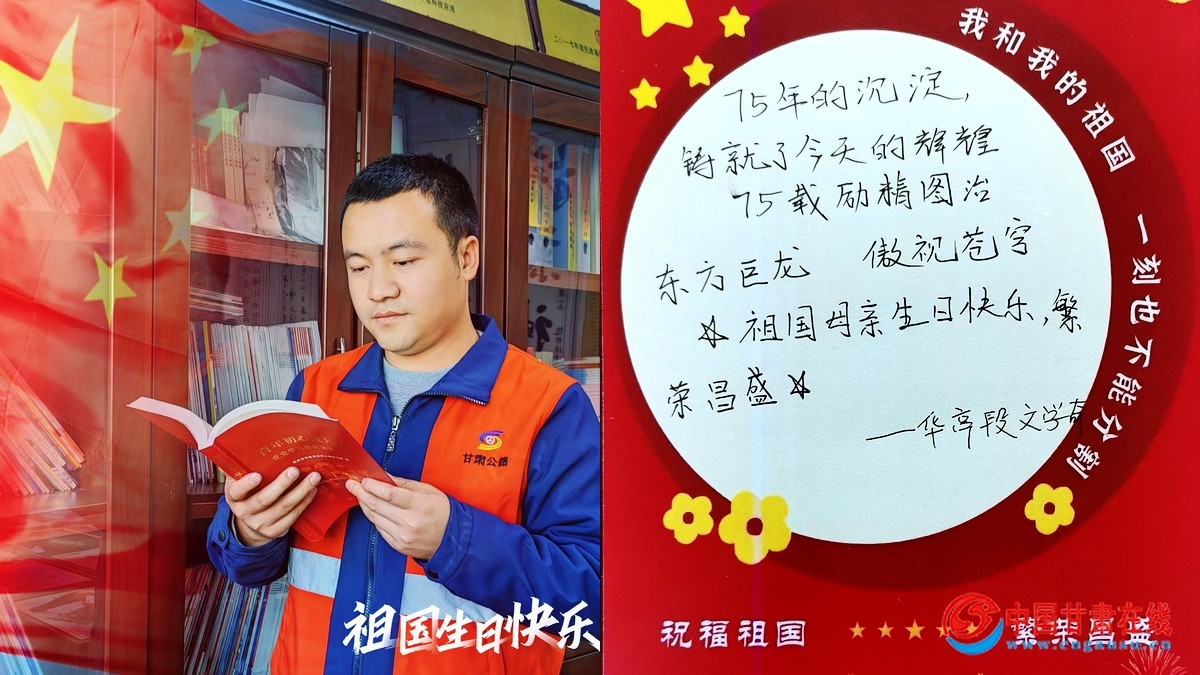 甘肃公路
祖国生日快乐
我和我的祖国
一刻也不能分割
75年的沉淀,
铸就了今天的辉煌
75载励精图治
东方巨龙 傲视苍宇
☆祖国母亲生日快乐,繁
荣昌盛☆
—华亭段文学
祝福祖国 ★★★★★ 繁荣昌盛
中国甘肃在线